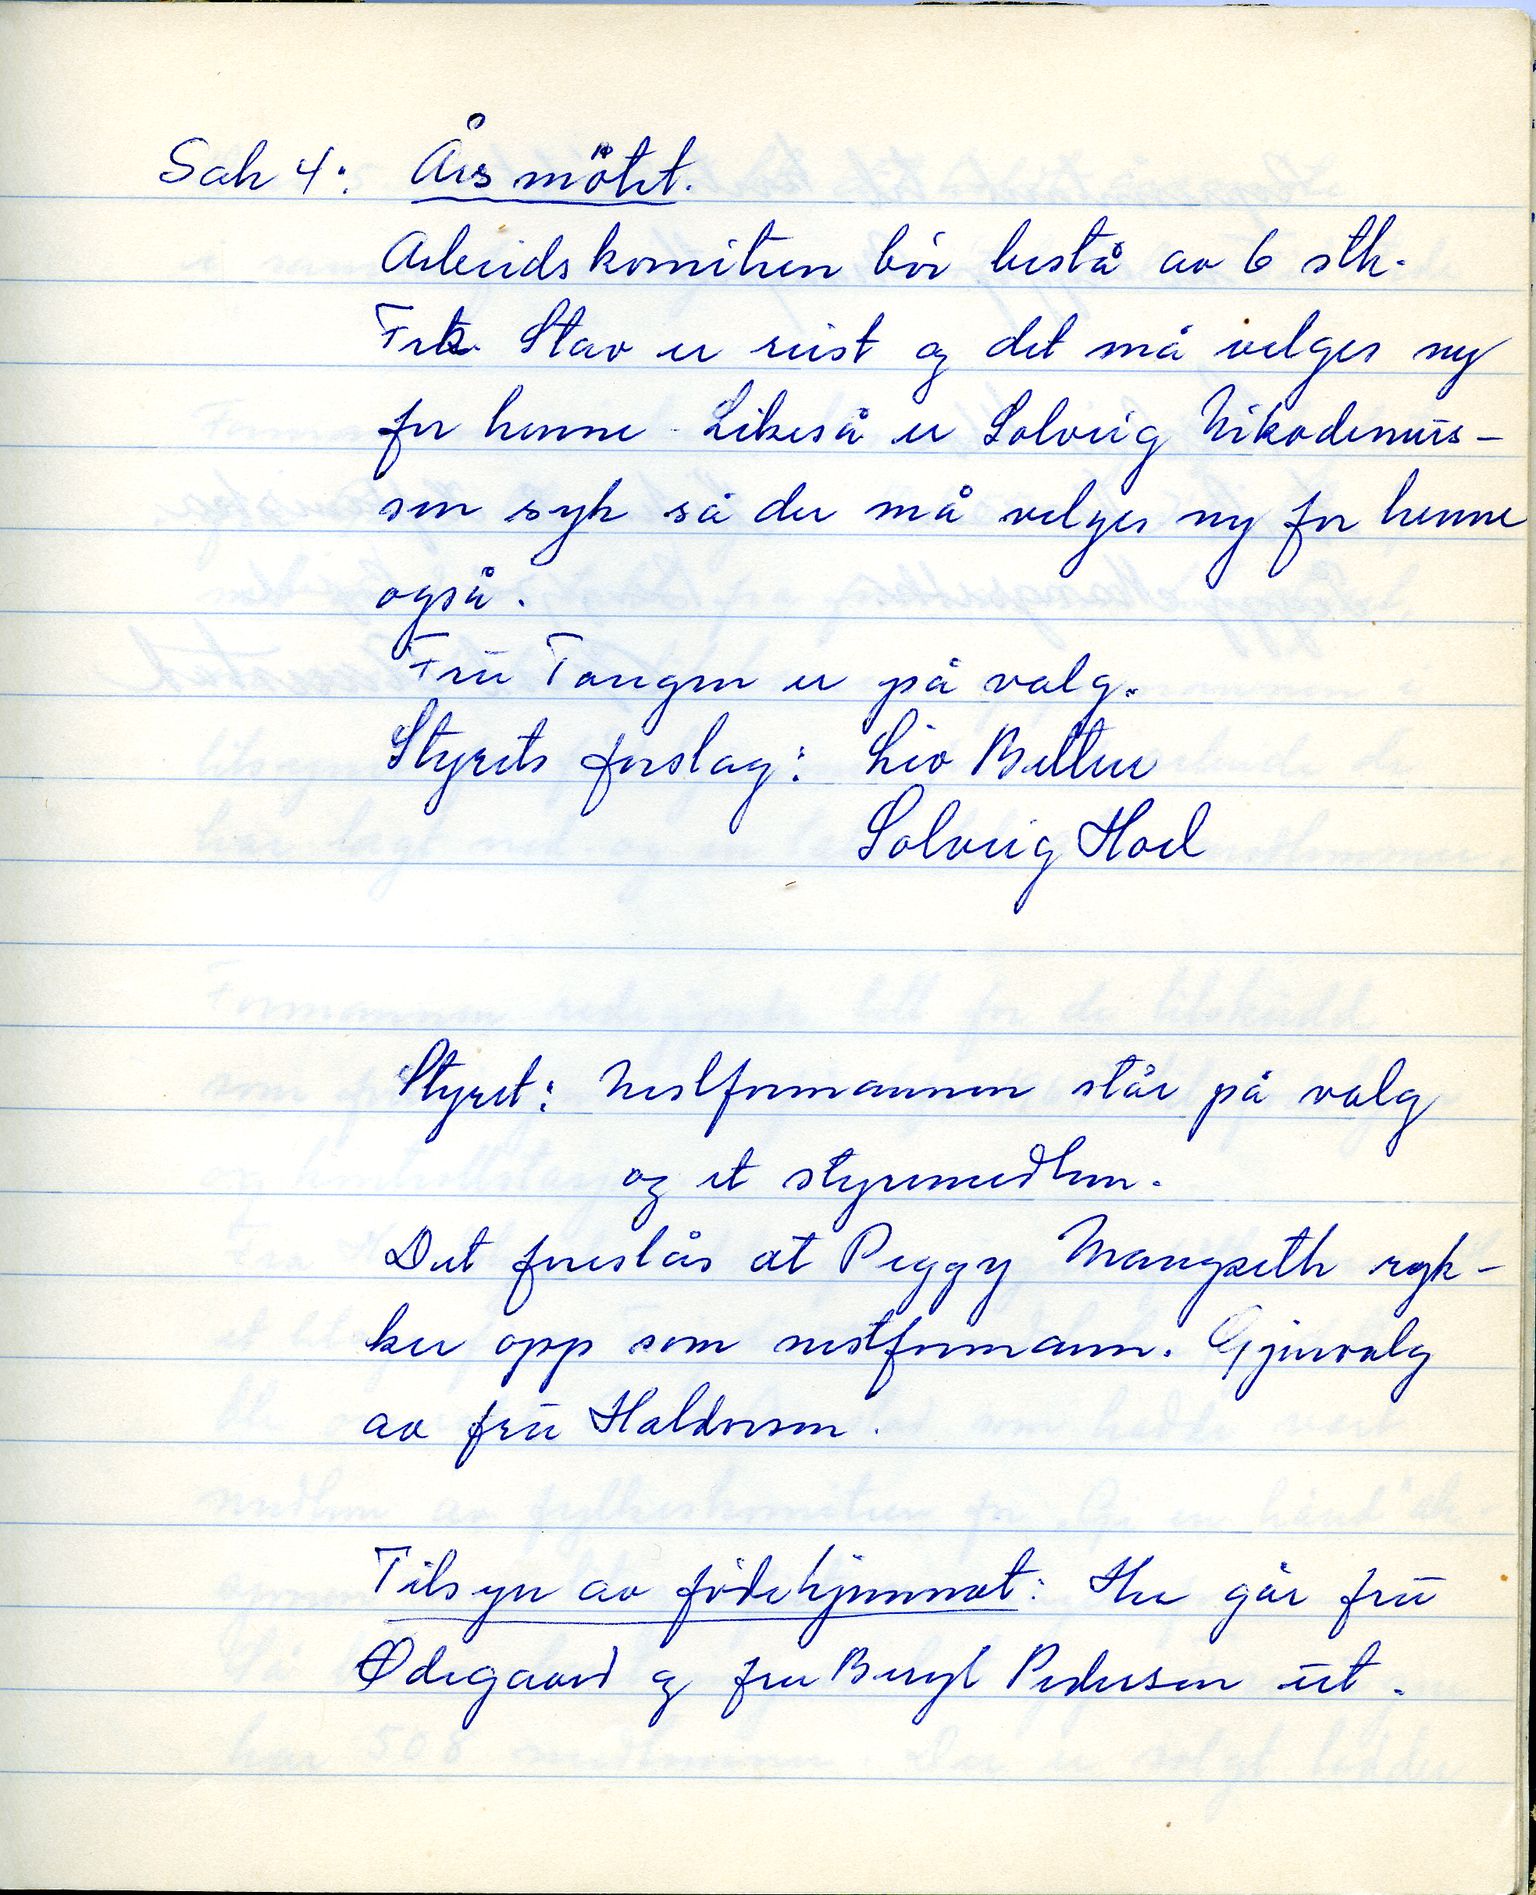 Sak 4: Årsmötet.
Arbeidskomiteen bör bestå av 6 stk.
Frk. Stav er reist og det må velges ny
for henne. Likeså er Solveig Nikodemus-
sen syk så der må velges ny for henne
også.
Fru Tangen er på valg.
Styrets forslag: Liv Beltur
Solveig Hoel
Styret: Nestformannen står på valg
og et styremedlem.
Det foreslås at Peggy Mangseth ryk-
ker opp som nestformann. Gjenvalg
av fru Haldorsen.
Tilsyn av födehjemmet: Her går fru
Ødegaard og fru Beryl Pedersen ut.